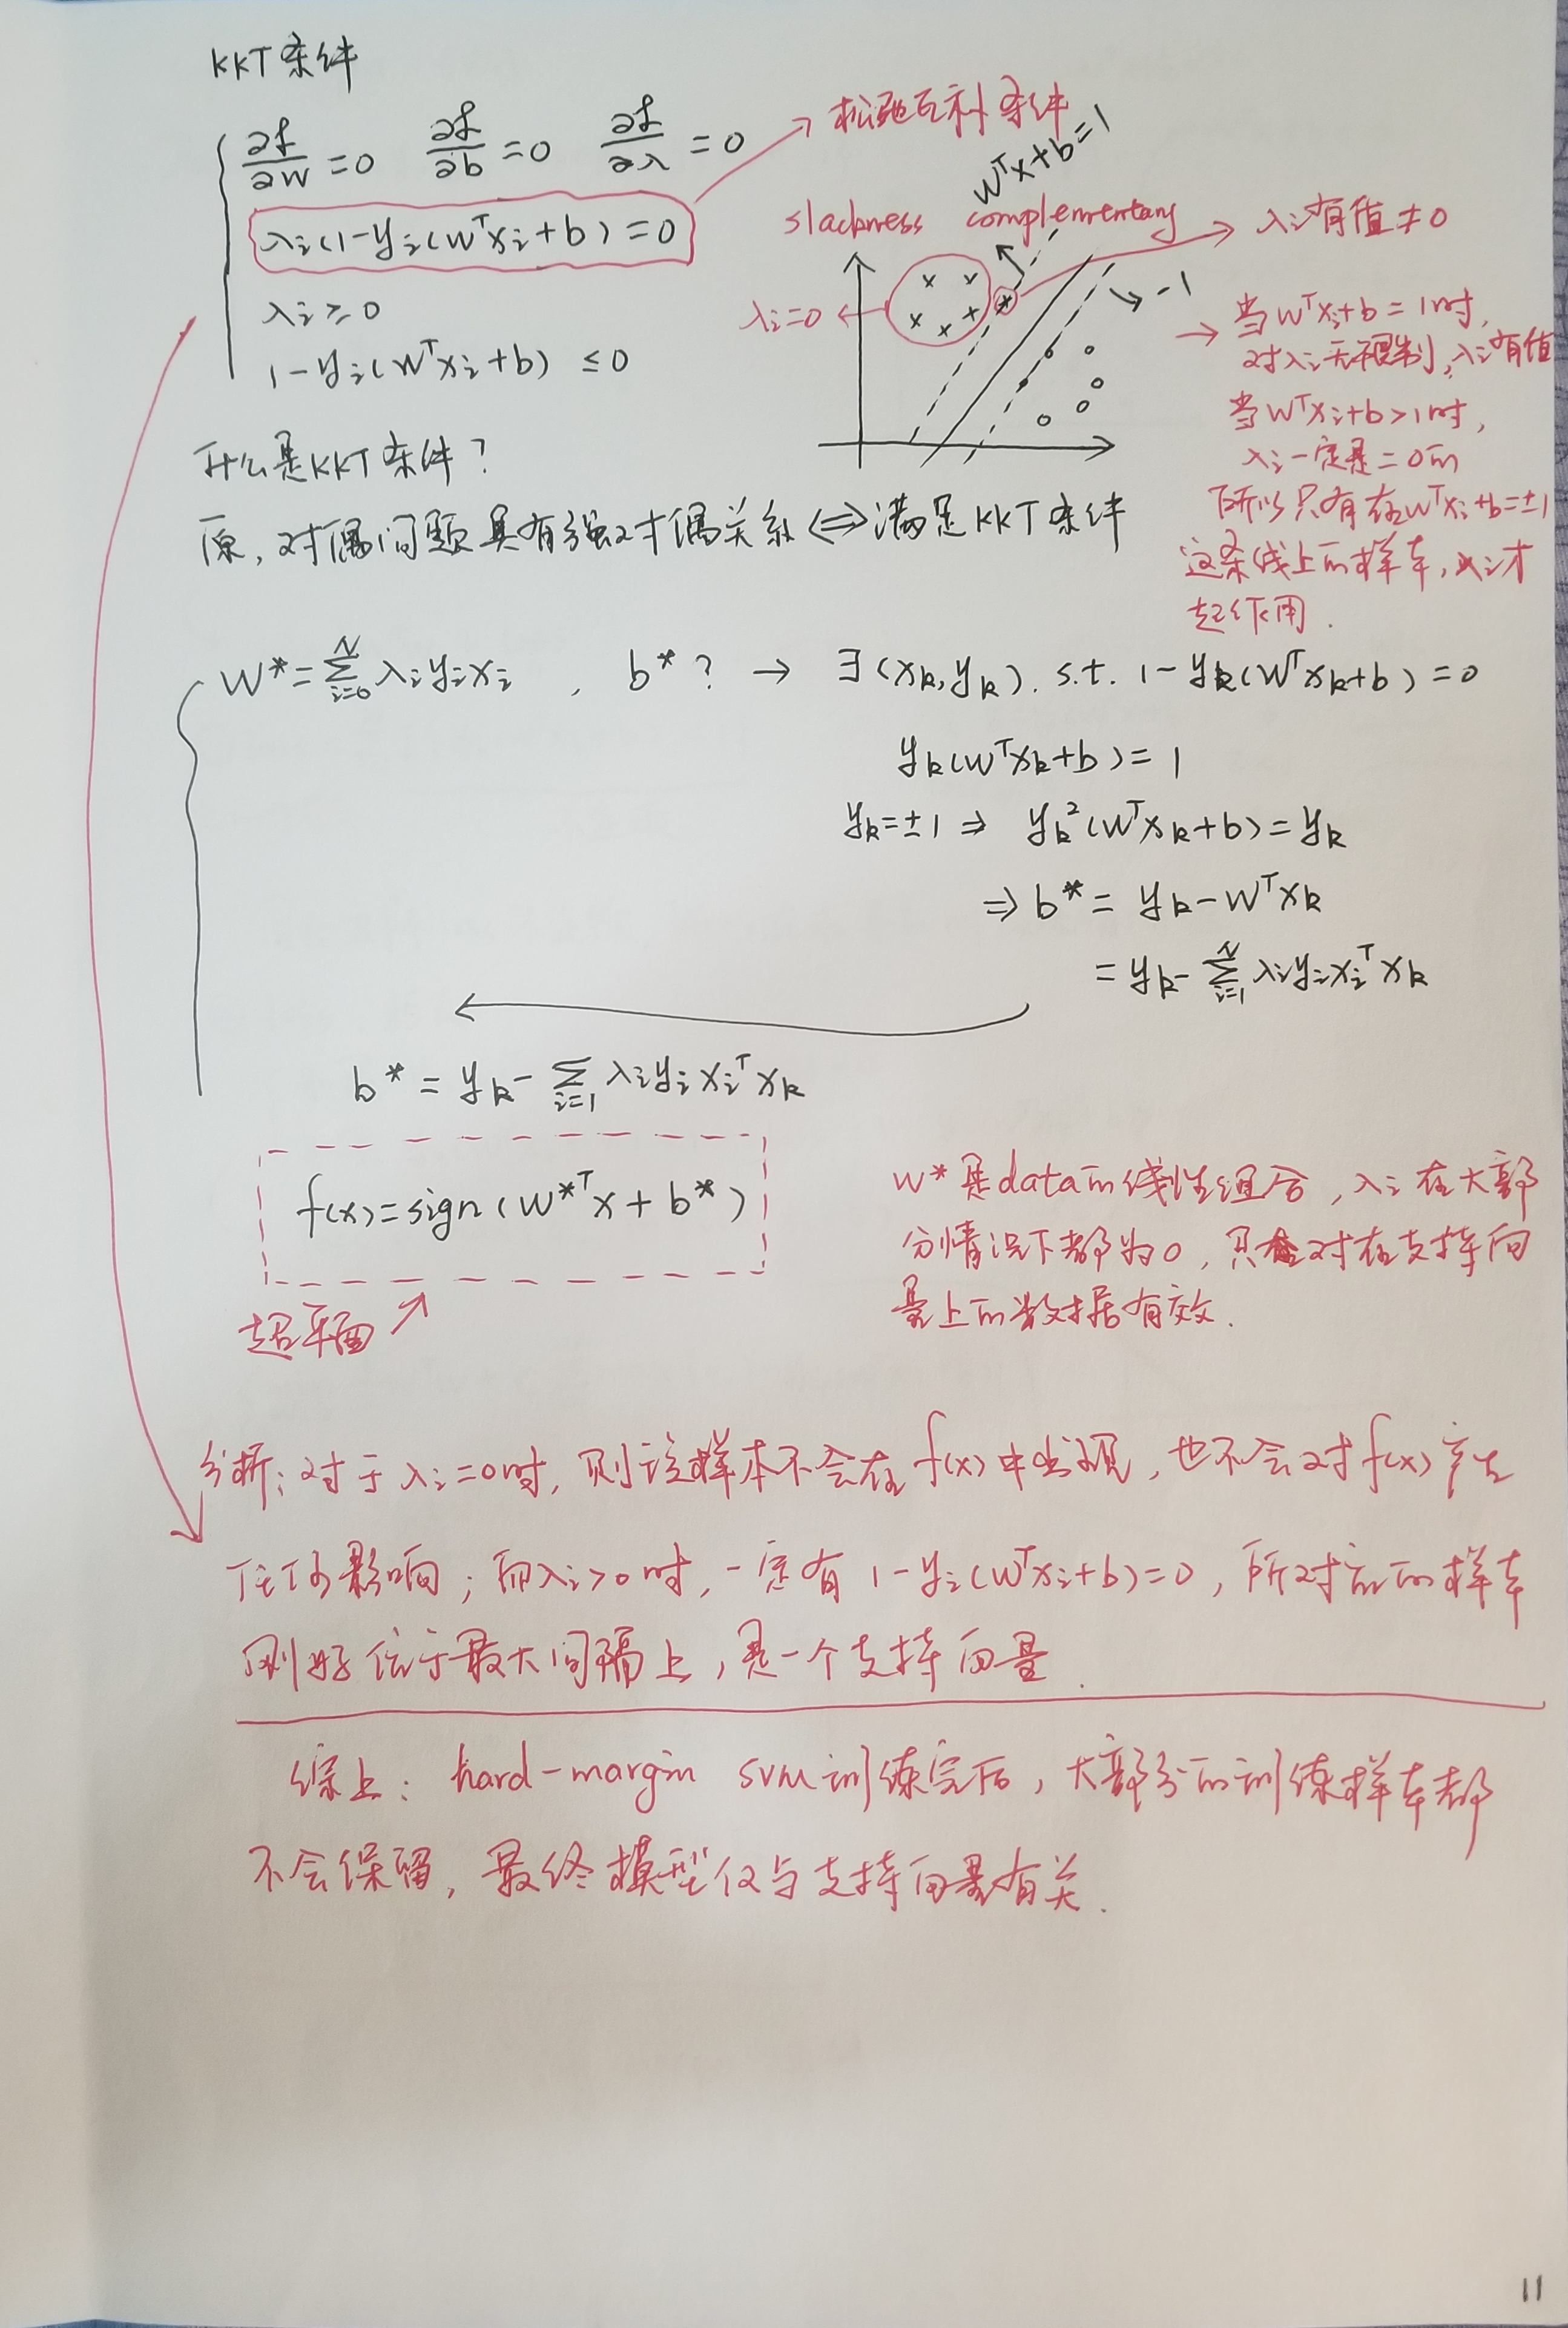 KKT条件
∂L/∂w=0 ∂L/∂b=0 ∂L/∂λ=0
λi(1-yi(wᵀxi+b))=0
λi≥0
1-yi(wᵀxi+b) ≤0
→松弛互补条件
slackness complementary
wᵀx+b=1
→λi有值≠0
λi=0
-1
→当wᵀxi+b=1时,
对λi无限制,λi有值
当wᵀxi+b>1时,
λi一定是=0的
所以只有在wᵀxi+b=±1
这条线上的样本,λi才
起作用.
什么是KKT条件?
原,对偶问题具有强对偶关系⟺满足KKT条件
w*=∑_{i=0}^{N} λiyixi , b*? → ∃(xk,yk). s.t. 1-yk(wᵀxk+b)=0
yk(wᵀxk+b)=1
yk=±1 ⇒ yk²(wᵀxk+b)=yk
⇒b*= yk-wᵀxk
=yk-∑_{i=1}^{N} λiyixiᵀxk
b*=yk-∑_{i=1} λiyixiᵀxk
f(x)=sign(w*ᵀx+b*)
超平面↗
w*是data的线性组合,λi在大部
分情况下都为0,只会对在支持向
量上的数据有效.
分析:对于λi=0时,则该样本不会在f(x)中出现,也不会对f(x)产生
任何影响;而λi>0时,一定有1-yi(wᵀxi+b)=0,所对应的样本
刚好位于最大间隔上,是一个支持向量.
综上: hard-margin svm训练完后,大部分的训练样本都
不会保留,最终模型仅与支持向量有关.
11